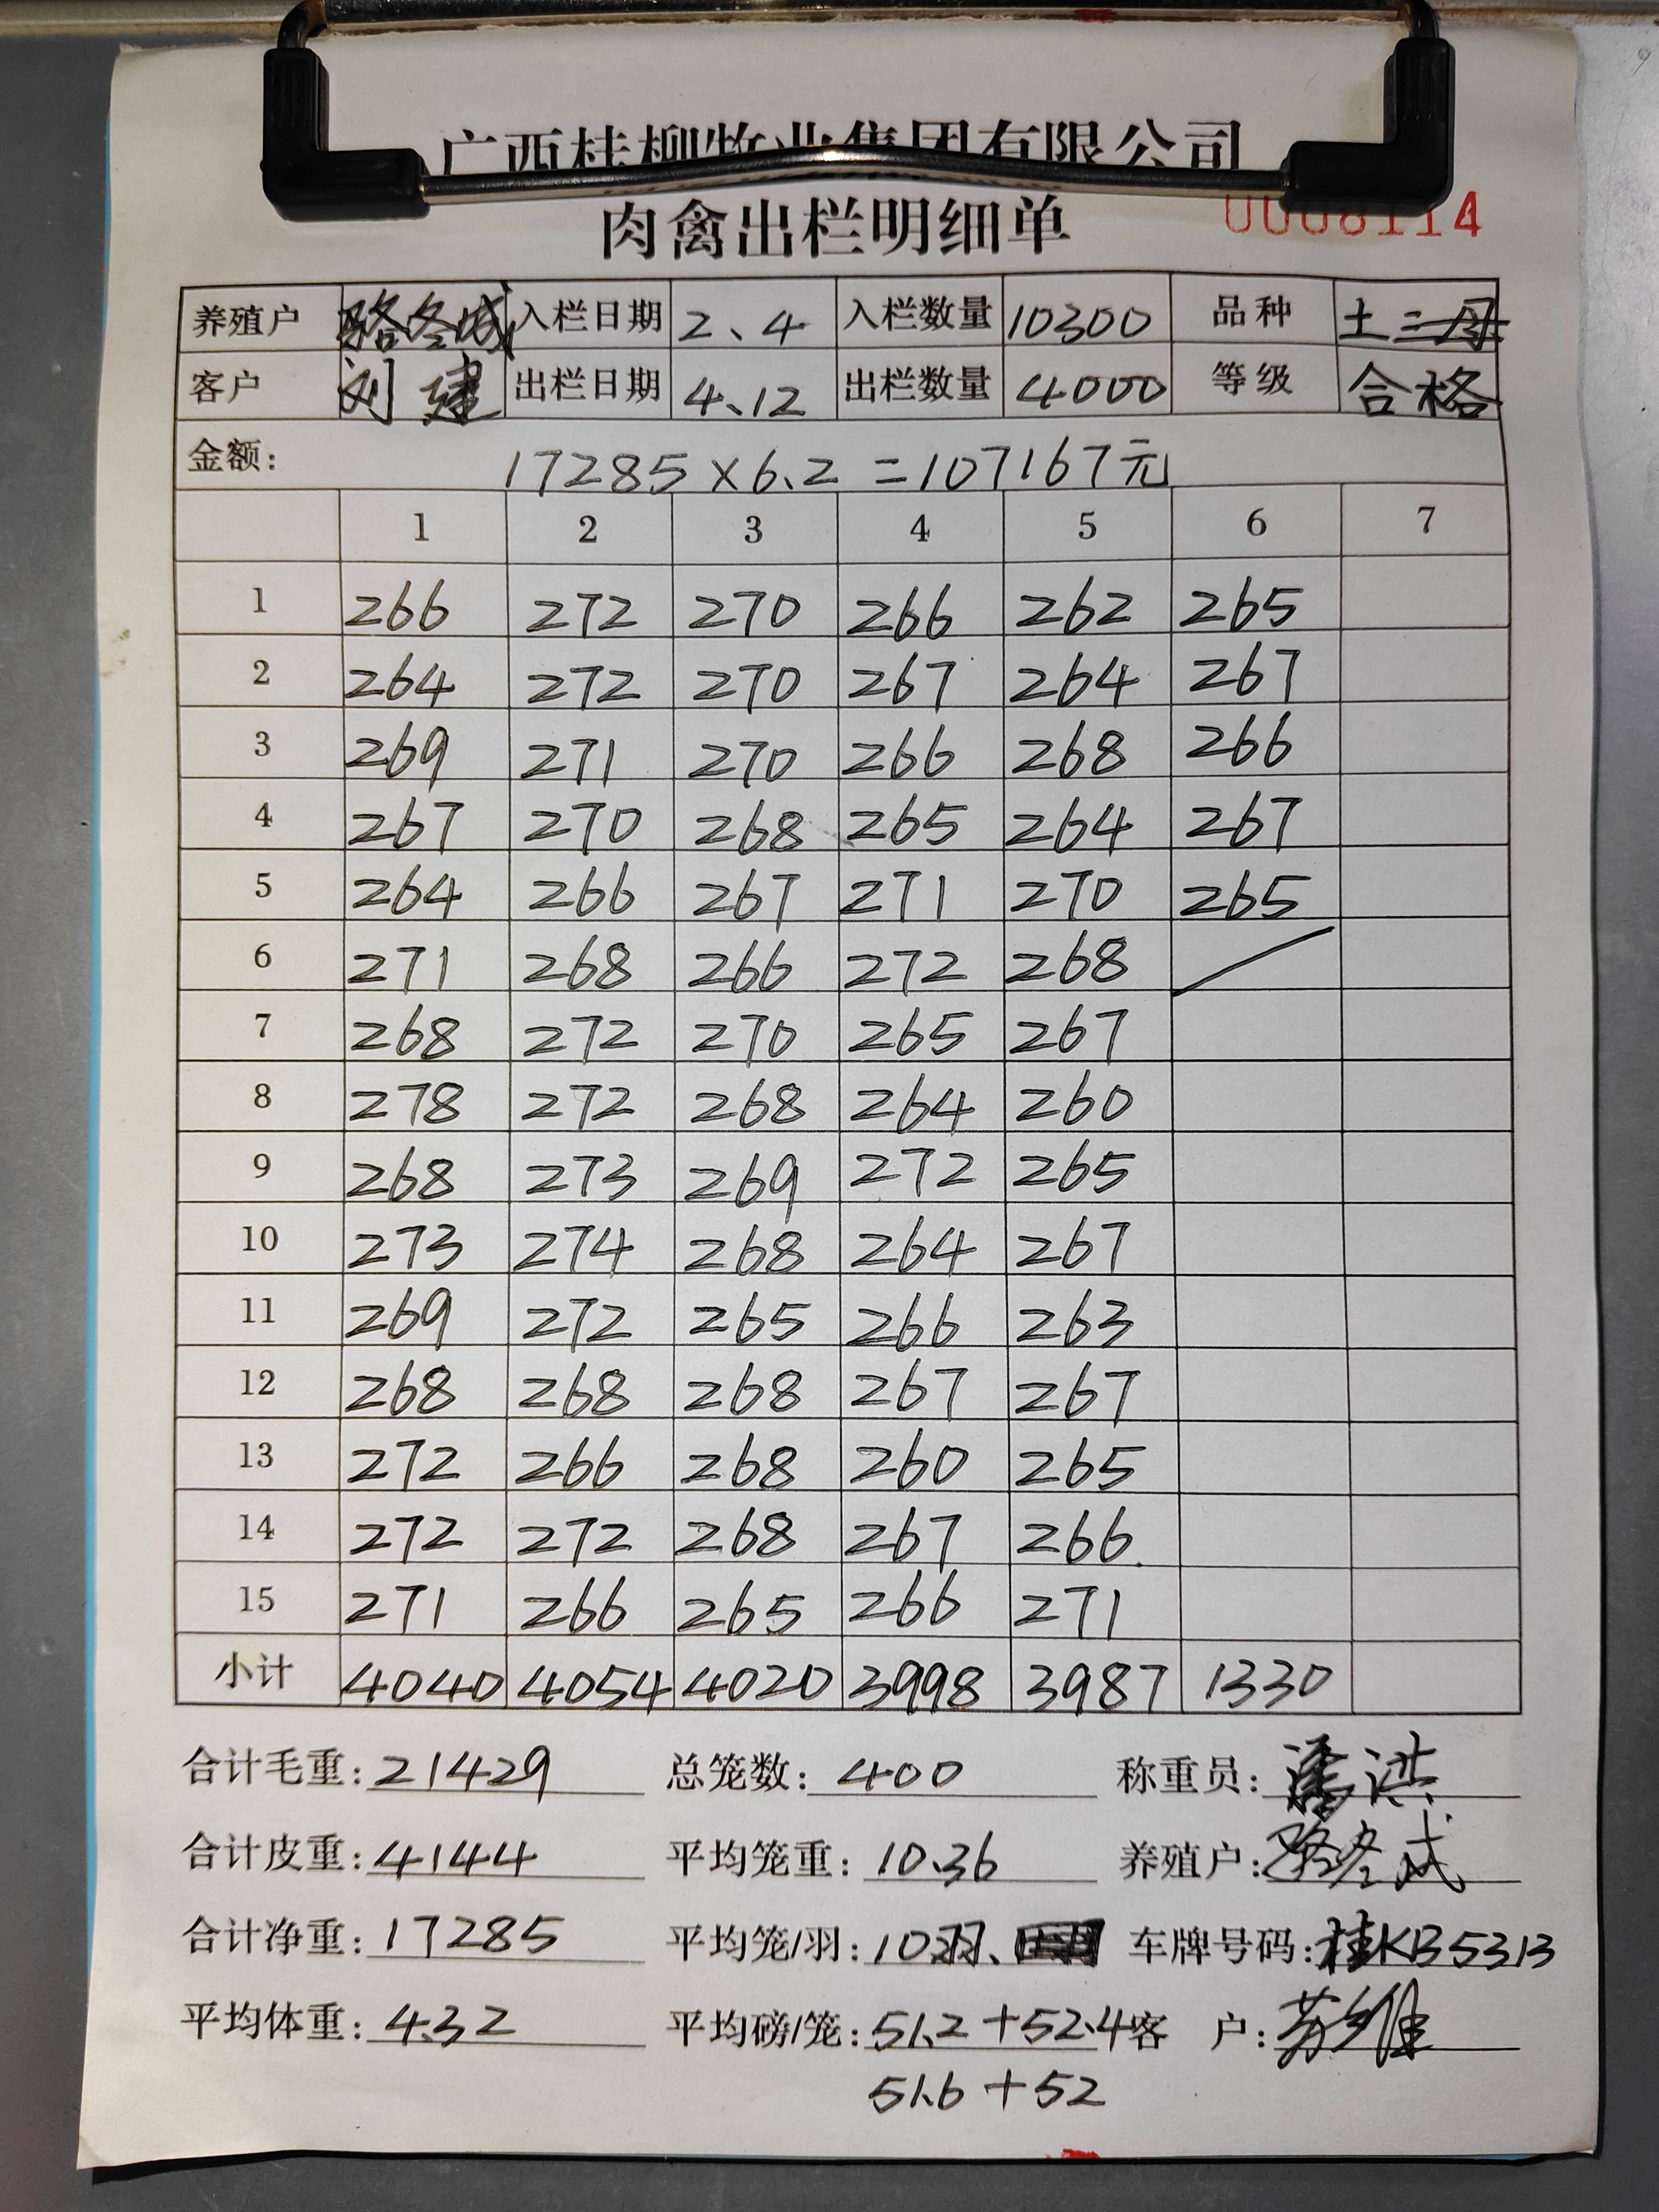 广西桂柳牧业集团有限公司
肉禽出栏明细单
0008114
养殖户 骆冬成 入栏日期 2、4 入栏数量 10300 品种 土二
客户 刘建 出栏日期 4、12 出栏数量 4000 等级 合格
金额: 17285×6.2=107167元
1 2 3 4 5 6 7
1 266 272 270 266 262 265
2 264 272 270 267 264 267
3 269 271 270 266 268 266
4 267 270 268 265 264 267
5 264 266 267 271 270 265
6 271 268 266 272 268
7 268 272 270 265 267
8 278 272 268 264 260
9 268 273 269 272 265
10 273 274 268 264 267
11 269 272 265 266 263
12 268 268 268 267 267
13 272 266 268 260 265
14 272 272 268 267 266
15 271 266 265 266 271
小计 4040 4054 4020 3998 3987 1330
合计毛重: 21429 总笼数: 400 称重员: 潘洪
合计皮重: 4144 平均笼重: 10.36 养殖户: 骆冬成
合计净重: 17285 平均笼/羽: 10羽、 车牌号码: 桂KB5313
平均体重: 4.32 平均磅/笼: 51.2+52.4 客 户:
51.6+52